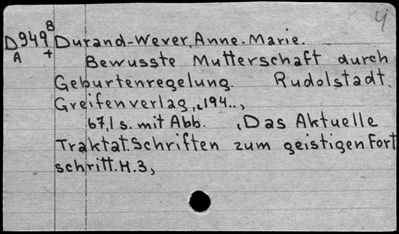 D949B Durand-Wever, Anne-Marie.
A + Bewusste Mutterschaft durch
Geburtenregelung. Rudolstadt,
Greifenverlag, 194..,
67,1 s. mit Abb. "Das Aktuelle
Traktat. Schriften zum geistigen Fort
schritt. H.3,